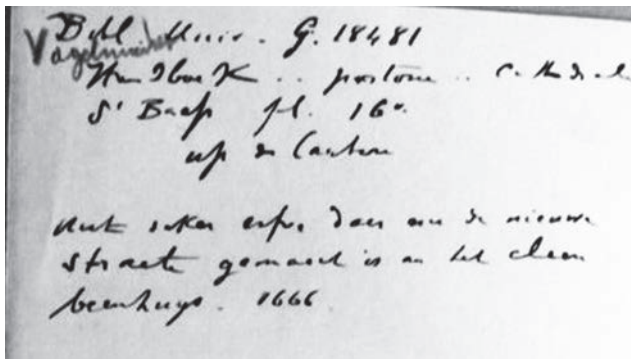 Bibl. Univ. G. 18481
Vogelmarkt
Handboek .. pastorie .. Cathedrale
St Baafs fl. 16o.
up de Cautere
seker erfve daer nu de nieuwe
straete gemaect is an het cleen
beenhuys. 1666